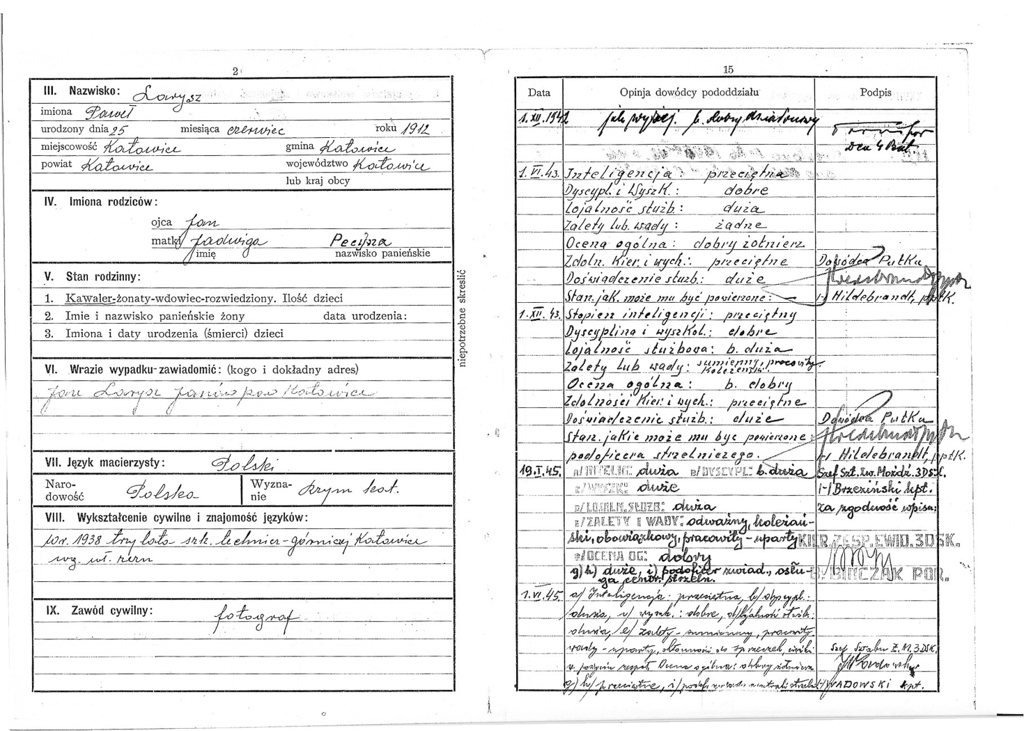 2
III. Nazwisko: Larysz
imiona Paweł
urodzony dnia 25 miesiąca czerwiec roku 1912
miejscowość Katowice gmina Katowice
powiat Katowice województwo Katowice
lub kraj obcy
IV. Imiona rodziców:
ojca Jan
matki Jadwiga
imię nazwisko panieńskie
V. Stan rodzinny:
1. Kawaler-żonaty-wdowiec-rozwiedziony. Ilość dzieci
2. Imie i nazwisko panieńskie żony data urodzenia:
3. Imiona i daty urodzenia (śmierci) dzieci
niepotrzebne skreślić
VI. Wrazie wypadku-zawiadomić: (kogo i dokładny adres)
Jan Larysz Janów pow Katowice
VII. Język macierzysty: Polski
Narodowość Polska Wyznanie Rzym kat.
VIII. Wykształcenie cywilne i znajomość języków:
1938 trzy lata szk. technicz-górniczej Katowice
IX. Zawód cywilny:
fotograf
15
Data Opinja dowódcy pododdziału Podpis
1.XII.1942 jak wyżej. b. dobry działonowy
Dca 4 Bat.
1.VI.43. Inteligencja: przeciętna
Dyscypl. i Wyszk.: dobre
Lojalność służb.: duża
Zalety lub wady: żadne
Ocena ogólna: dobry żołnierz
Zdoln. kier. i wych.: przeciętne Dowódca Pułku
Doświadczenie służb.: duże
Stan. jak. może mu być powierzone: — /-/ Hildebrandt, ppłk.
1.XII.43. Stopień inteligencji: przeciętny
Dyscyplina i wyszkol.: dobre
Lojalność służbowa: b. duża
Zalety lub wady: sumienny, pracowity koleżeński
Ocena ogólna: b. dobry
Zdolności kier. i wych.: przeciętne
Doświadczenie służb.: duże Dowódca Pułku
Stan. jakie może mu być powierzone:
podoficera strzelniczego. /-/ Hildebrandt, ppłk.
19.I.45. a/INTELIG: duża b/DYSCYPL: b. duża Szef Szt. Zw. Moźdź. 3DSK.
c/WYSZK: duże /-/ Brzeziński kpt.
d/LOJALN. SŁUŻB: duża Za zgodność wpisu:
e/ZALETY I WADY: odważny, koleżeński, obowiązkowy, pracowity - uparty KIER. ZESP. EWID. 3DSK.
f/OCENA OG: dobry
g) h) duże, i) podoficer zwiad., osługa centr. strzeln. BINCZAK POR.
1.VI.45. a) Inteligencja: przeciętna, b) dyscypl.:
duża, c) wyszk.: dobre, d) lojalność służb.:
duża, e) zalety - sumienny, pracowity
wady - uparty,
Szef Sztabu
kpt.